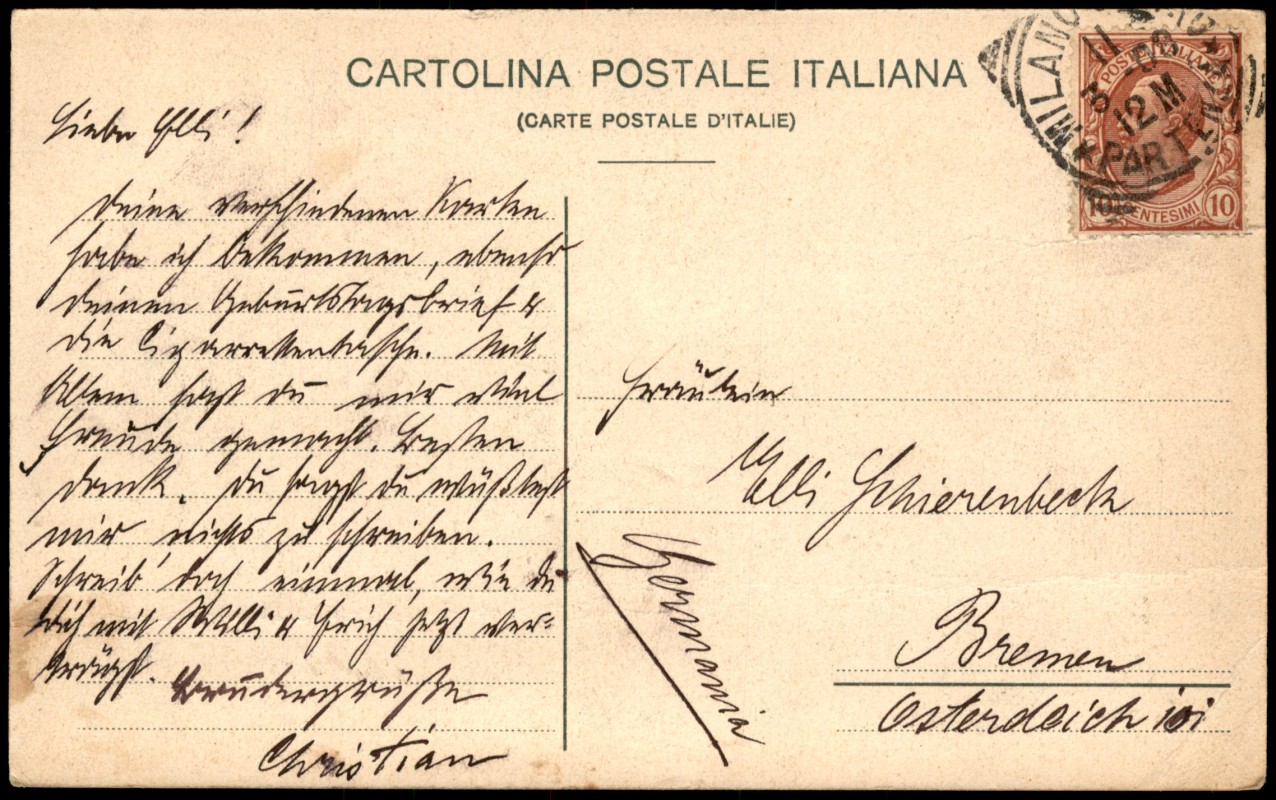 CARTOLINA POSTALE ITALIANA
(CARTE POSTALE D'ITALIE)
MILANO
PARTENZA
3 11 08
12 M
POSTE ITALIANE
10 CENTESIMI 10
Liebe Elli!
Deine verschiedenen Karten
habe ich bekommen, ebenso
deinen Geburtstagsbrief &
die Cigarrettentasche. Mit
Allem hast du mir viel
Freude gemacht. Besten
Dank. Du sagst du wüßtest
mir nichts zu schreiben.
Schreib' doch einmal, wie du
dich mit Willi & Erich jetzt ver-
trägst. Brudergrüße
Christian
Fräulein
Elli Schierenbeck
Bremen
Osterdeich 101
Germania